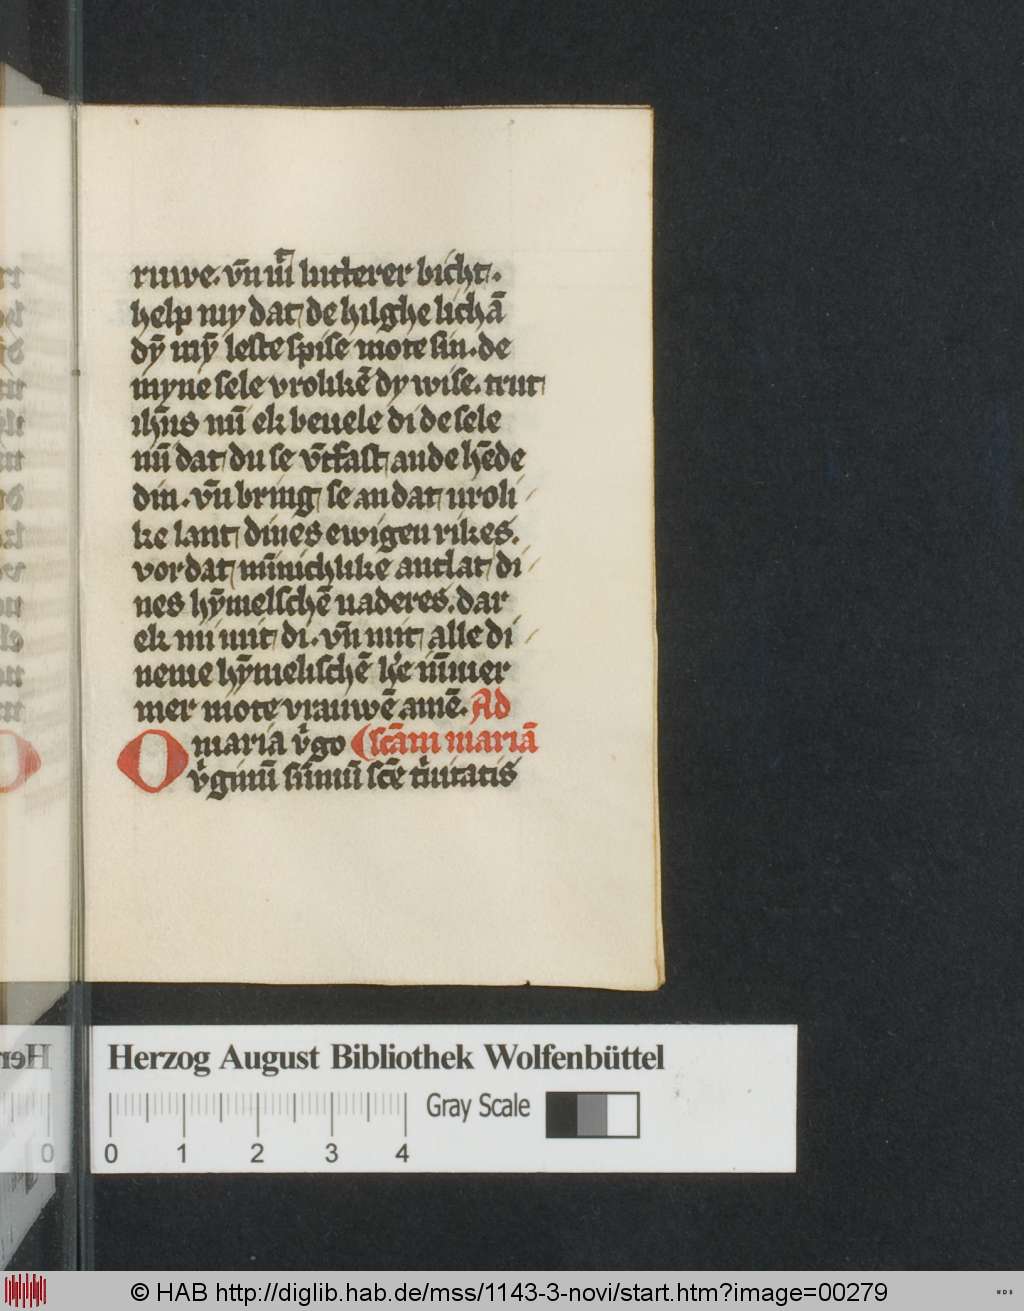 ruwe. vn̄ mͭ lutterer bicht.
help my dat de hilghe lichā
dȳ mȳ leste spise mote sin. de
myne sele vrolikē dy wise. trut
ihūs nū ek beuele di de sele
mī dat du se vntfast an de hēde
din. vn̄ bring se an dat uroli
ke lant dines ewigen rikes.
vor dat mīnichlike antlat di
nes hȳmelschē uaderes. dar
ek mi mit di. vn̄ mit alle di
neme hȳmelischē he īmer
mer mote vrauwē amē. Ad
O maria vͥgo scām mariā
vͥginū sūmū scē tͥnitatis
Herzog August Bibliothek Wolfenbüttel
0 1 2 3 4 Gray Scale
© HAB http://diglib.hab.de/mss/1143-3-novi/start.htm?image=00279